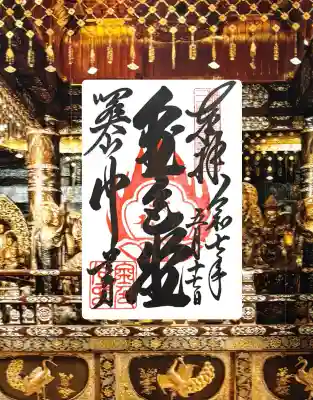 奉拝
令和七年
五月十七日
金色堂
關山
中尊寺